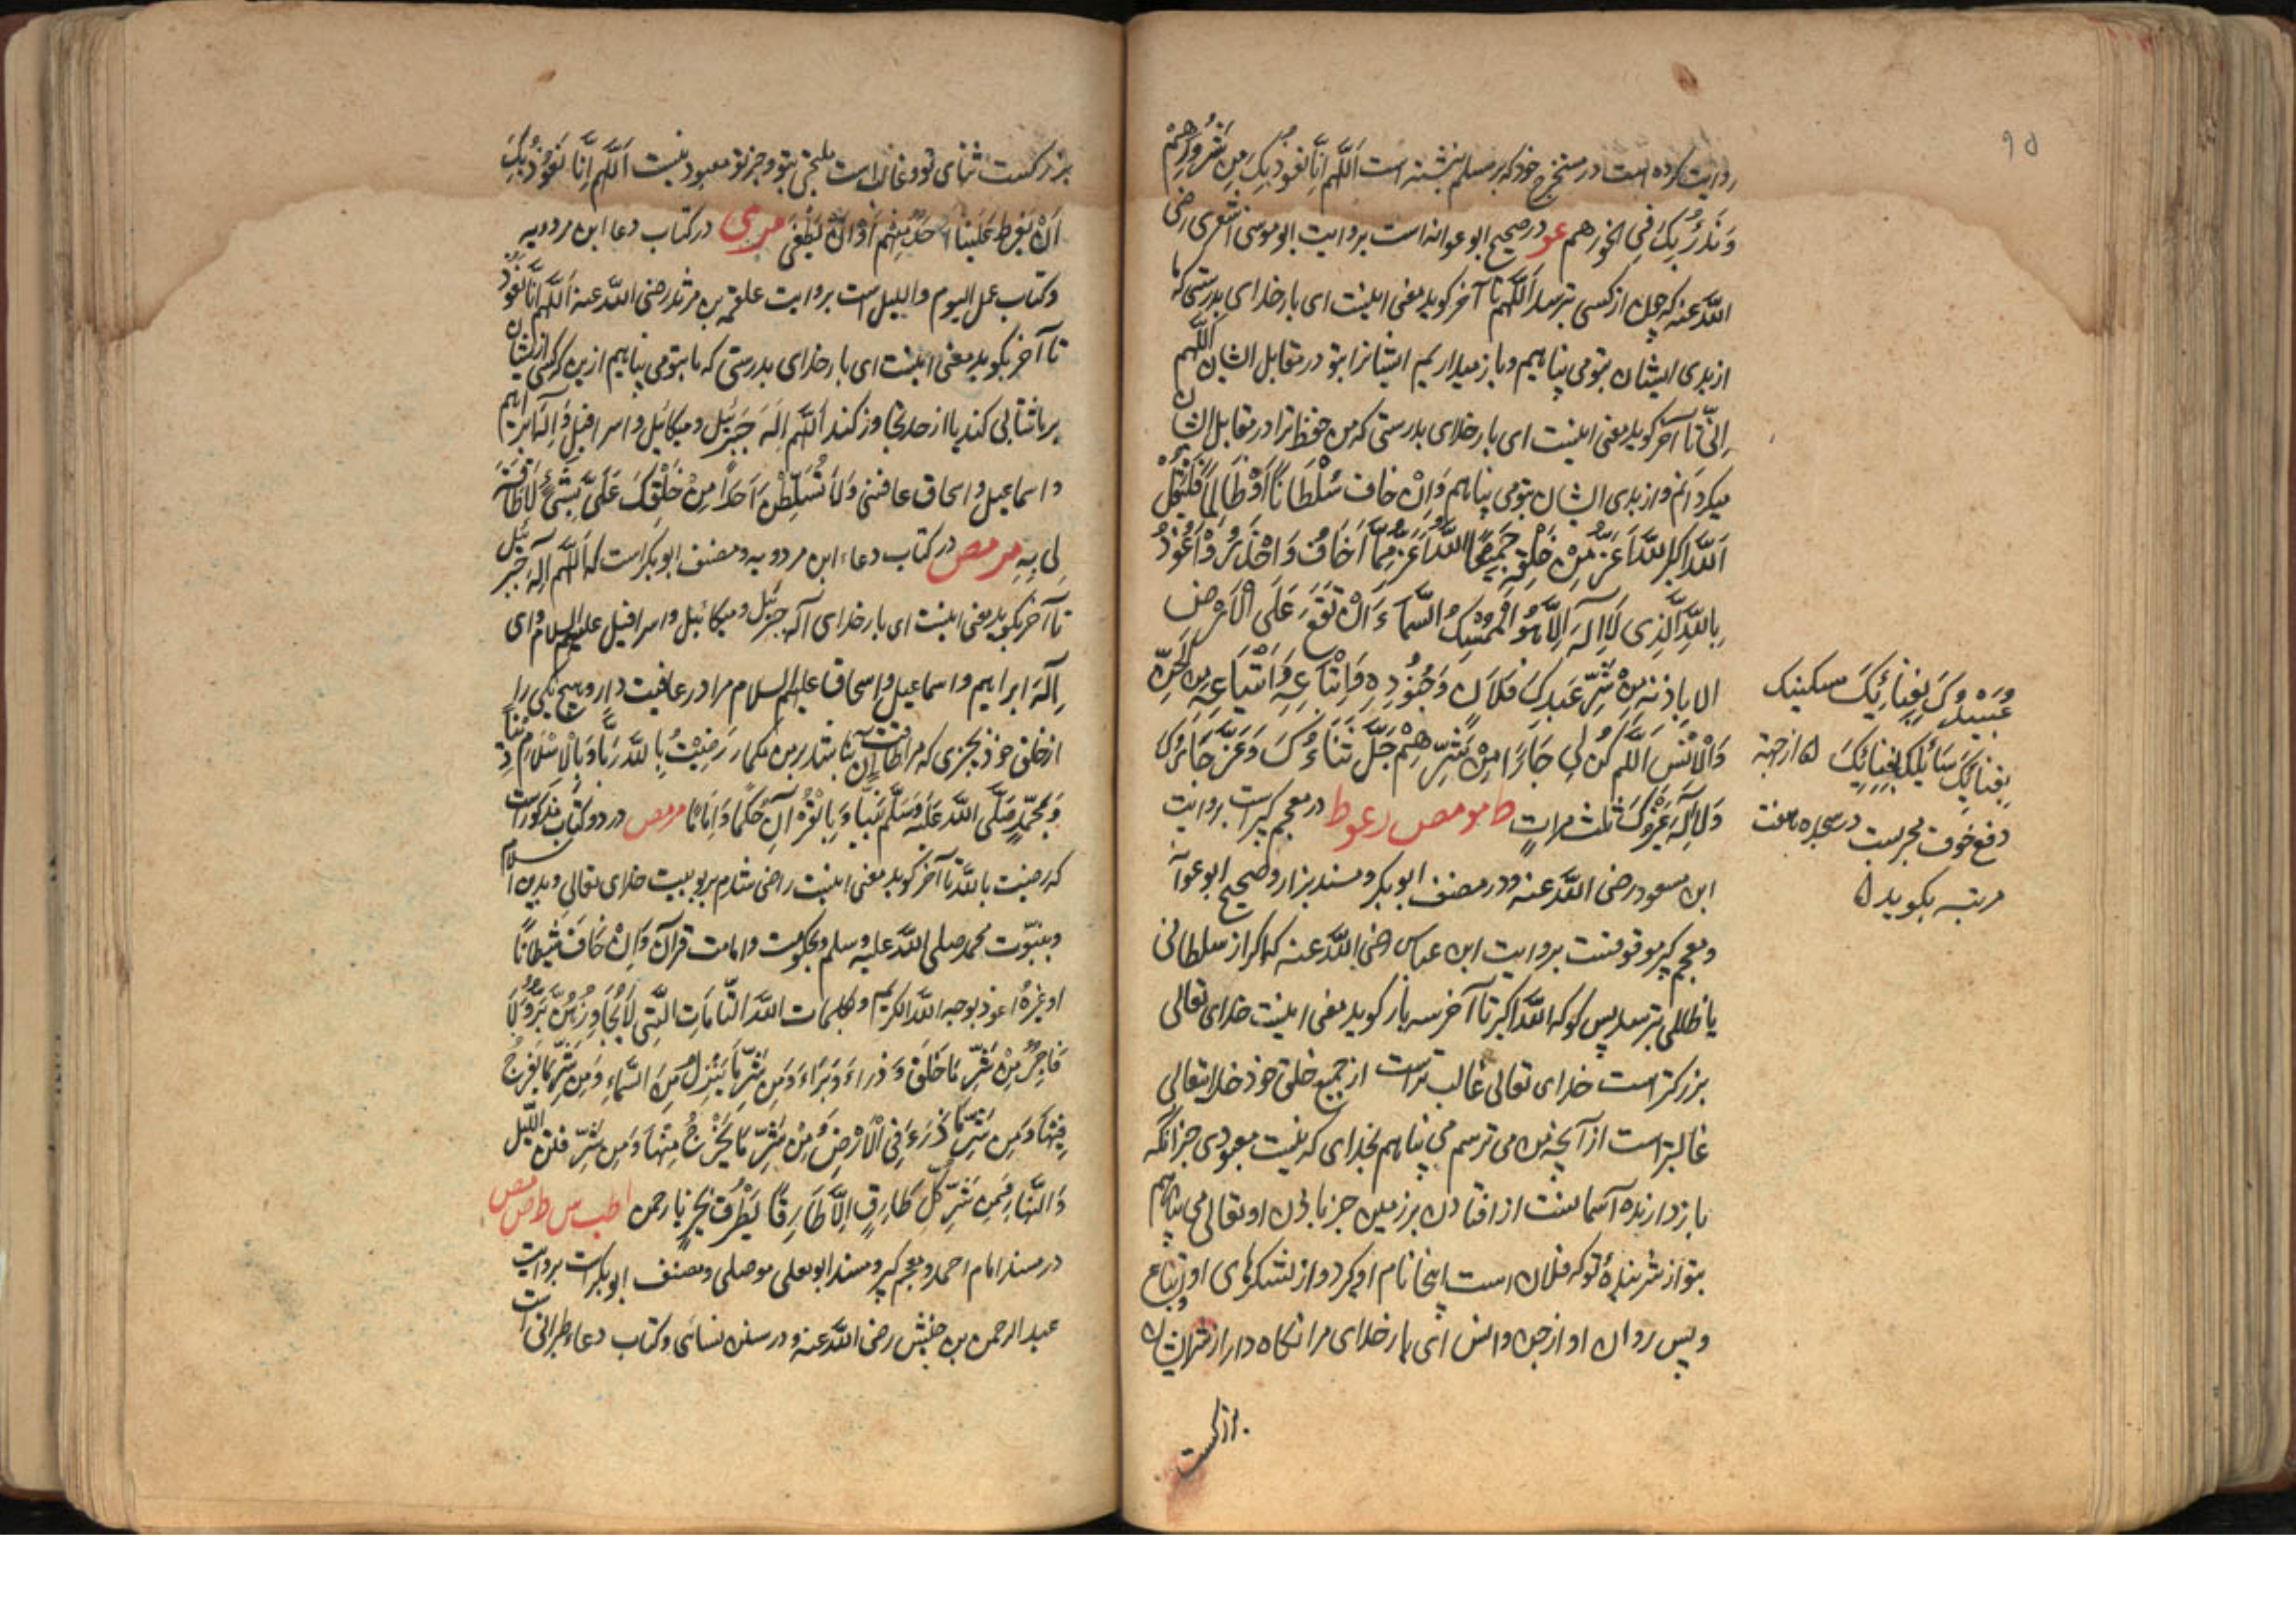 ۹۵
روایت کرده است در مستخرج خود که بر مسلم نبشته است اَللّٰهُمَّ اِنَّا نَعُوْذُ بِكَ مِنْ شُرُوْرِهِمْ
وَنَدْرَؤُ بِكَ فِی نحورهم عو در صحیح ابو عوانه است بروایت ابو موسی اشعری رضی
اللّه عنه که چون از کسی بترسد اَللّٰهُمَّ تا آخر کوید یعنی اینست ای بار خدای بدرستی که ما
از بدی ایشان بتو می پناهیم و باز میداریم ایشانرا بتو در مقابل ایشان اللّهم
اِنّی تا آخر کوید یعنی اینست ای بار خدای بدرستی که من حفظ ترا در مقابل ایشان
میکردانم و از بدی ایشان بتو می پناهم وَاِنْ خاف سُلْطَانًا اَوْ ظَالِمًا فَلْیَقُلْ
اَللّٰهُ اَکبر اَللّٰهُ اَعَزُّ مِنْ خَلْقِهٖ جَمِیْعًا اَللّٰهُ اَعَزُّ مِمَّا اَخَافُ وَاَحْذَرُ وَاَعُوْذُ
بِاللّٰهِ الَّذِی لَا اِلٰهَ اِلَّا هُوَ الْمُمْسِكُ السَّمَاءَ اَنْ تَقَعَ عَلَی الْاَرْضِ
الا بِاِذنه مِنْ شَرِّ عَبدِكَ فُلَانٍ وَجُنُوْدِهٖ وَاَتْبَاعِهٖ وَاَشْیَاعِهٖ مِنَ الْجِنِّ
وَالْاِنْسِ اَللّٰهُمَّ کُنْ لِی جَارًا مِنْ شَرِّهِمْ جَلَّ ثَنَاءُكَ وَعَزَّ جَارُكَ
وَلَا اِلٰهَ غَیْرُكَ ثلث مراتٍ ط مو مص ر عو ط در معجم کبیر است بروایت
ابن مسعود رضی اللّه عنه و در مصنف ابو بکر و مسند بزار و صحیح ابو عوانه
و معجم کبیر موقوفست بروایت ابن عباس رضی اللّه عنه که اکر از سلطانی
یا ظالمی بترسد پس کو که اللّه اکبر تا آخر سه بار کوید یعنی اینست خدای تعالی
بزرکتر است خدای تعالی غالب تراست از جمیع خلق خود خدایتعالی
غالبتر است از آنچه من می ترسم می پناهم بخدای که نیست معبودی جز آنکه
باز دارنده آسمانست از افتادن بر زمین جز باذن او تعالی می پناهم
بتو از شر بندهٔ تو که فلان است اینجا نام او کیرد و از لشکرهای او و اتباع
و پس روان او از جن و انس ای بار خدای مرا نکاه دار از شر ایشان
بزرکست
بِفِنَائِكَ مسکینك
عبیدك
بِفِنَائِكَ سَائِلك بِفِنَائِكَ از جهة
دفع خوف مجربست در سجده هفت
مرتبه بکوید
بزرکست ثنای تو و غالب است ملتجی بتو و جز تو معبود نیست اَللّٰهُمَّ اِنَّا نَعُوْذُ بِكَ
اَنْ یَفْرُطَ عَلَیْنَا اَحَدٌ مِنْهُمْ اَوْ اَنْ یَطْغَی مر ی در کتاب دعا ابن مردویه
و کتاب عمل الیوم واللیل است بروایت علقمه بن مرثد رضی اللّه عنه اَللّٰهُمَّ اِنَّا نَعُوْذُ
تا آخر بکوید یعنی اینست ای بار خدای بدرستی که ما بتو می پناهیم ازین که کسی از ایشان
بر ما شتابی کند یا از حد تجاوز کند اَللّٰهُمَّ اِلٰهَ جَبْرَئِیل و میکائیل و اسرافیل وَاِلٰهَ ابراهیم
و اسماعیل و اسحاق عافنی وَلَا تُسَلِّطَنَّ اَحَدًا مِنْ خَلْقِكَ عَلَیَّ بِشَیْءٍ لَا طَاقَةَ
لِی بِهٖ مر مص در کتاب دعاء ابن مردویه و مصنف ابو بکر است که اَللّٰهُمَّ اِلٰهَ جبرئیل
تا آخر بکوید یعنی اینست ای بار خدای آله جبرئیل و میکائیل و اسرافیل علیهم السلام و ای
اِلٰهَ ابراهیم و اسماعیل و اسحاق علیهم السلام مرا در عافیت دار و هیچ یکی را
از خلق خود بچیزی که مرا طاقت آن نباشد بر من مکمار رَضِیْتُ بِاللّٰهِ رَبًّا وَبِالْاِسْلَامِ دِیْنًا
وَبِمُحَمَّدٍ صَلَّی اللّٰهُ عَلَیْهِ وَسَلَّمَ نَبِیًّا وَبِالْقُرْاٰنِ حَکَمًا وَاِمَامًا مر مص در دو کتاب مذکور است
که رضیت باللّه تا آخر کوید یعنی اینست راضی شدم بربوبیت خدای تعالی و بدین اسلام
و بنبوّت محمد صلی اللّه علیه وسلم و بحکومت و امامت قرآن وَاِنْ خَافَ شَیْطَانًا
او غیرهُ اعوذ بوجه اللّه الکریم و بکلمات اللّه التَّامَّاتِ الَّتِی لَا یُجَاوِزُهُنَّ بَرٌّ وَلَا
فَاجِرٌ مِنْ شَرِّ مَا خَلَقَ وَذَرَاءَ وَبَرَاءَ وَمِنْ شَرِّ مَا یَنْزِلُ مِنَ السَّمَاءِ وَمِنْ شَرِّ مَا یَعْرُجُ
فِیْهَا وَمِنْ شَرِّ مَا ذَرَءَ فِی الْاَرْضِ وَمِنْ شَرِّ مَا یَخْرُجُ مِنْهَا وَمِنْ شَرِّ فتن اللَّیل
وَالنَّهَارِ وَمِنْ شَرِّ کُلِّ طَارِقٍ اِلَّا طَارِقًا یَطْرُقُ بخیر یا رحمن ا طب س ط ص مص
در مسند امام احمد و معجم کبیر و مسند ابو یعلی موصلی و مصنف ابو بکر است بروایت
عبد الرحمن بن خنبش رضی اللّه عنه و در سنن نسائی و کتاب دعاء طبرانی است